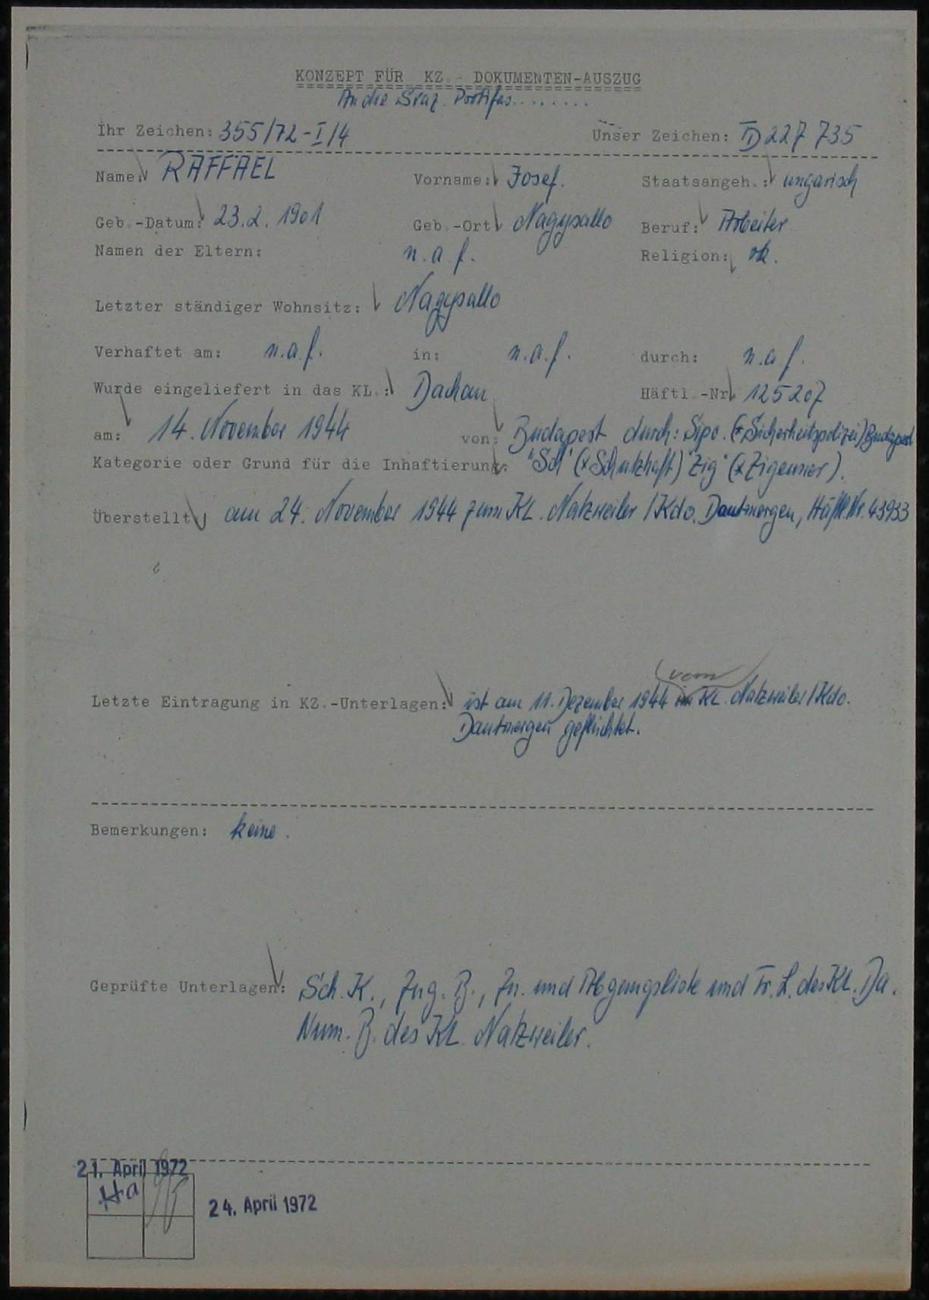 KONZEPT FÜR KZ.- DOKUMENTEN-AUSZUG
Ihr Zeichen: 355/72-I/4 Unser Zeichen: TD 227 735
Name: RAFFAEL Vorname: Josef. Staatsangeh.: ungarisch
Geb.-Datum: 23.2. 1901 Geb.-Ort: Nagysallo Beruf: Arbeiter
Namen der Eltern: n.a.f. Religion: rk.
Letzter ständiger Wohnsitz: Nagysallo
Verhaftet am: n.a.f. in: n.a.f. durch: n.a.f.
Wurde eingeliefert in das KL.: Dachau Häftl.-Nr. 125207
am: 14. November 1944 von: Budapest durch: Sipo. (*Sicherheitspolizei) Budapest
Kategorie oder Grund für die Inhaftierung: "Sch" (*Schutzhaft) "Zig" (*Zigeuner).
Überstellt: am 24. November 1944 zum KL. Natzweiler/Kdo. Dautmergen, Häftl.Nr. 43933
vom
Letzte Eintragung in KZ.-Unterlagen: ist am 11. Dezember 1944 im KL. Natzweiler/Kdo.
Dautmergen geflüchtet.
Bemerkungen: keine.
Geprüfte Unterlagen: Sch.K., Zug.B., Zu- und Abgangsliste und Tr.L. des KL. Da.
Num. B. des KL. Natzweiler.
21. April 1972
Ha
24. April 1972